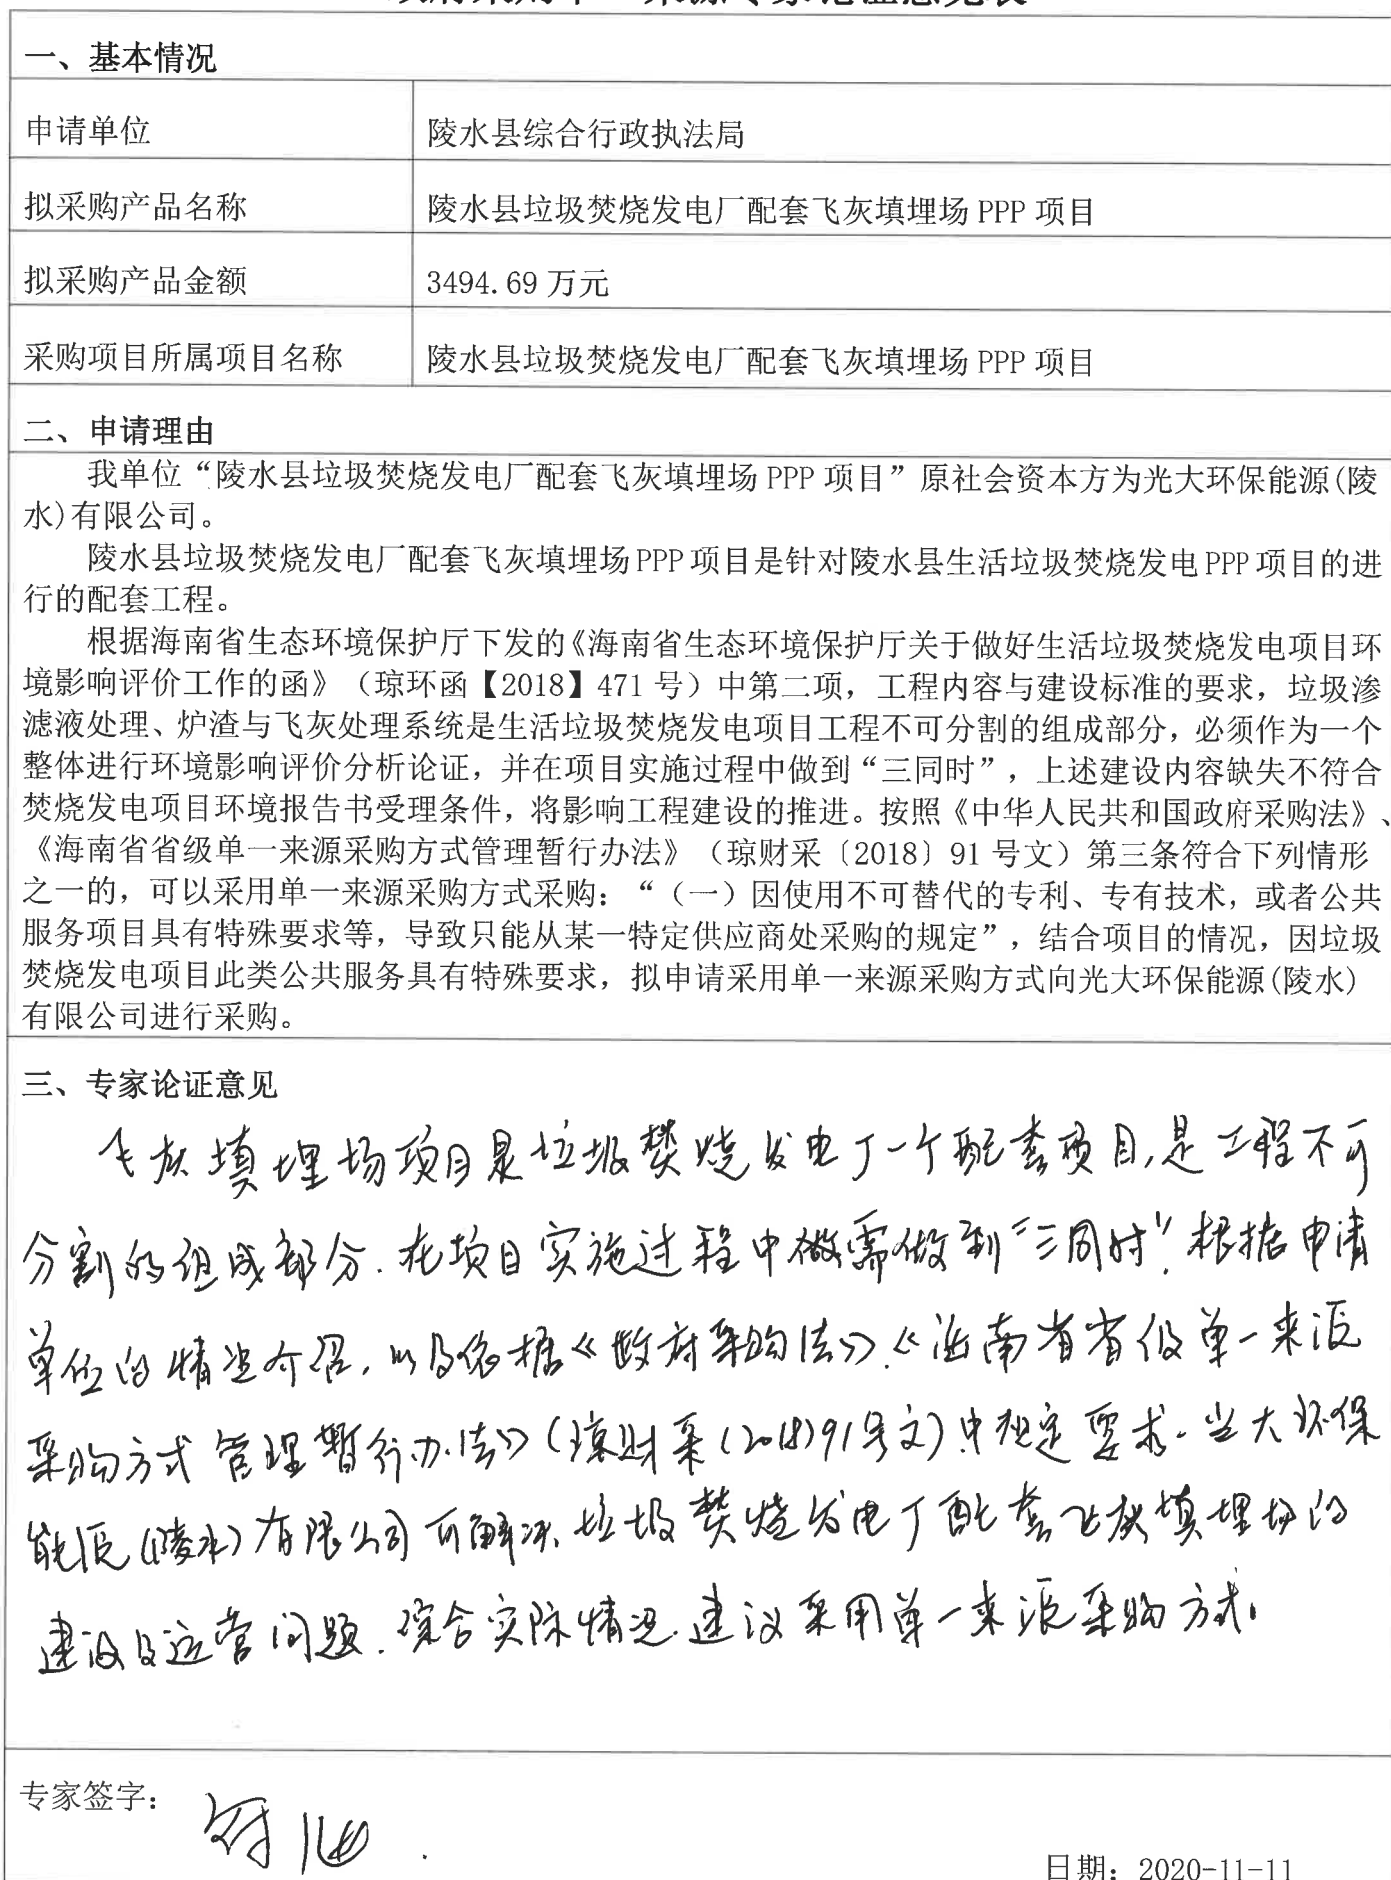 一、基本情况
申请单位 陵水县综合行政执法局
拟采购产品名称 陵水县垃圾焚烧发电厂配套飞灰填埋场 PPP 项目
拟采购产品金额 3494.69 万元
采购项目所属项目名称 陵水县垃圾焚烧发电厂配套飞灰填埋场 PPP 项目
二、申请理由
我单位“陵水县垃圾焚烧发电厂配套飞灰填埋场 PPP 项目”原社会资本方为光大环保能源(陵
水)有限公司。
陵水县垃圾焚烧发电厂配套飞灰填埋场 PPP 项目是针对陵水县生活垃圾焚烧发电 PPP 项目的进
行的配套工程。
根据海南省生态环境保护厅下发的《海南省生态环境保护厅关于做好生活垃圾焚烧发电项目环
境影响评价工作的函》（琼环函【2018】471 号）中第二项，工程内容与建设标准的要求，垃圾渗
滤液处理、炉渣与飞灰处理系统是生活垃圾焚烧发电项目工程不可分割的组成部分，必须作为一个
整体进行环境影响评价分析论证，并在项目实施过程中做到“三同时”，上述建设内容缺失不符合
焚烧发电项目环境报告书受理条件，将影响工程建设的推进。按照《中华人民共和国政府采购法》、
《海南省省级单一来源采购方式管理暂行办法》（琼财采〔2018〕91 号文）第三条符合下列情形
之一的，可以采用单一来源采购方式采购：“（一）因使用不可替代的专利、专有技术，或者公共
服务项目具有特殊要求等，导致只能从某一特定供应商处采购的规定”，结合项目的情况，因垃圾
焚烧发电项目此类公共服务具有特殊要求，拟申请采用单一来源采购方式向光大环保能源(陵水)
有限公司进行采购。
三、专家论证意见
飞灰填埋场项目是垃圾焚烧发电厂一个配套项目,是工程不可
分割的组成部分.在项目实施过程中做需做到“三同时”.根据申请
单位的情况介绍,以及依据《政府采购法》.《海南省省级单一来源
采购方式管理暂行办法》(琼财采(2018)91号文)中规定要求.光大环保
能源(陵水)有限公司可解决垃圾焚烧发电厂配套飞灰填埋场的
建设及运营问题.综合实际情况.建议采用单一来源采购方式.
专家签字：
日期：2020-11-11